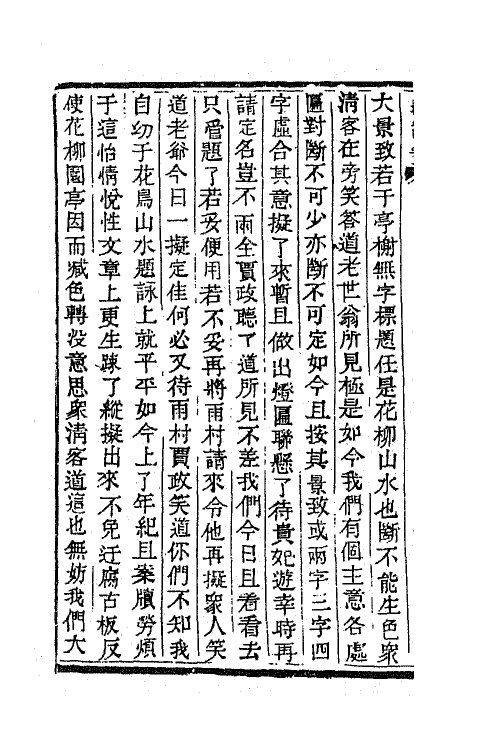 大景致若干亭榭無字標題任是花柳山水也斷不能生色衆
清客在旁笑答道老世翁所見極是如今我們有個主意各處
匾對斷不可少亦斷不可定如今且按其景致或兩字三字四
字虛合其意擬了來暫且做出燈匾聯懸了待貴妃遊幸時再
請定名豈不兩全賈政聽了道所見不差我們今日且看看去
只管題了若妥便用若不妥再將雨村請來令他再擬衆人笑
道老爺今日一擬定佳何必又待雨村賈政笑道你們不知我
自幼于花鳥山水題詠上就平平如今上了年紀且案牘勞煩
于這怡情悅性文章上更生踈了縱擬出來不免迂腐古板反
使花柳園亭因而減色轉没意思衆清客道這也無妨我們大